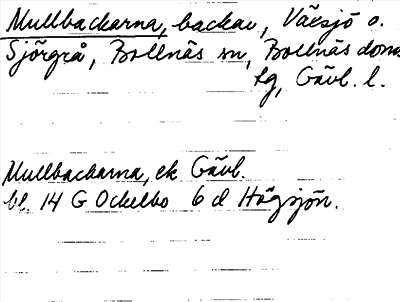 Mullbackarna, backar, Växsjö o.
Sjörgrå, Bollnäs sn, Bollnäs doms.
lg, Gävl. l.
Mullbackarna, ek Gävl.
bl. 14 G Ockelbo 6 d Högsjön.